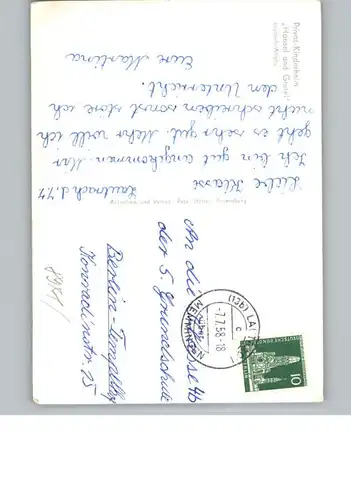 Privat-Kinderheim
"Hänsel und Gretel"
Lautrach d. 7.7.
Liebe Klasse
Ich bin gut angekommen. Mir
geht es sehr gut. Mehr will ich
nicht schreiben sonst störe ich
den Unterricht.
Eure Martina
An die Klasse 4b
der 5. Grundschule
Berlin-Tempelhof
Konradinstr. 15
(13b)
-7.7.58-18
MEMMINGEN
DEUTSCHE BUNDESPOST
BERLIN
10